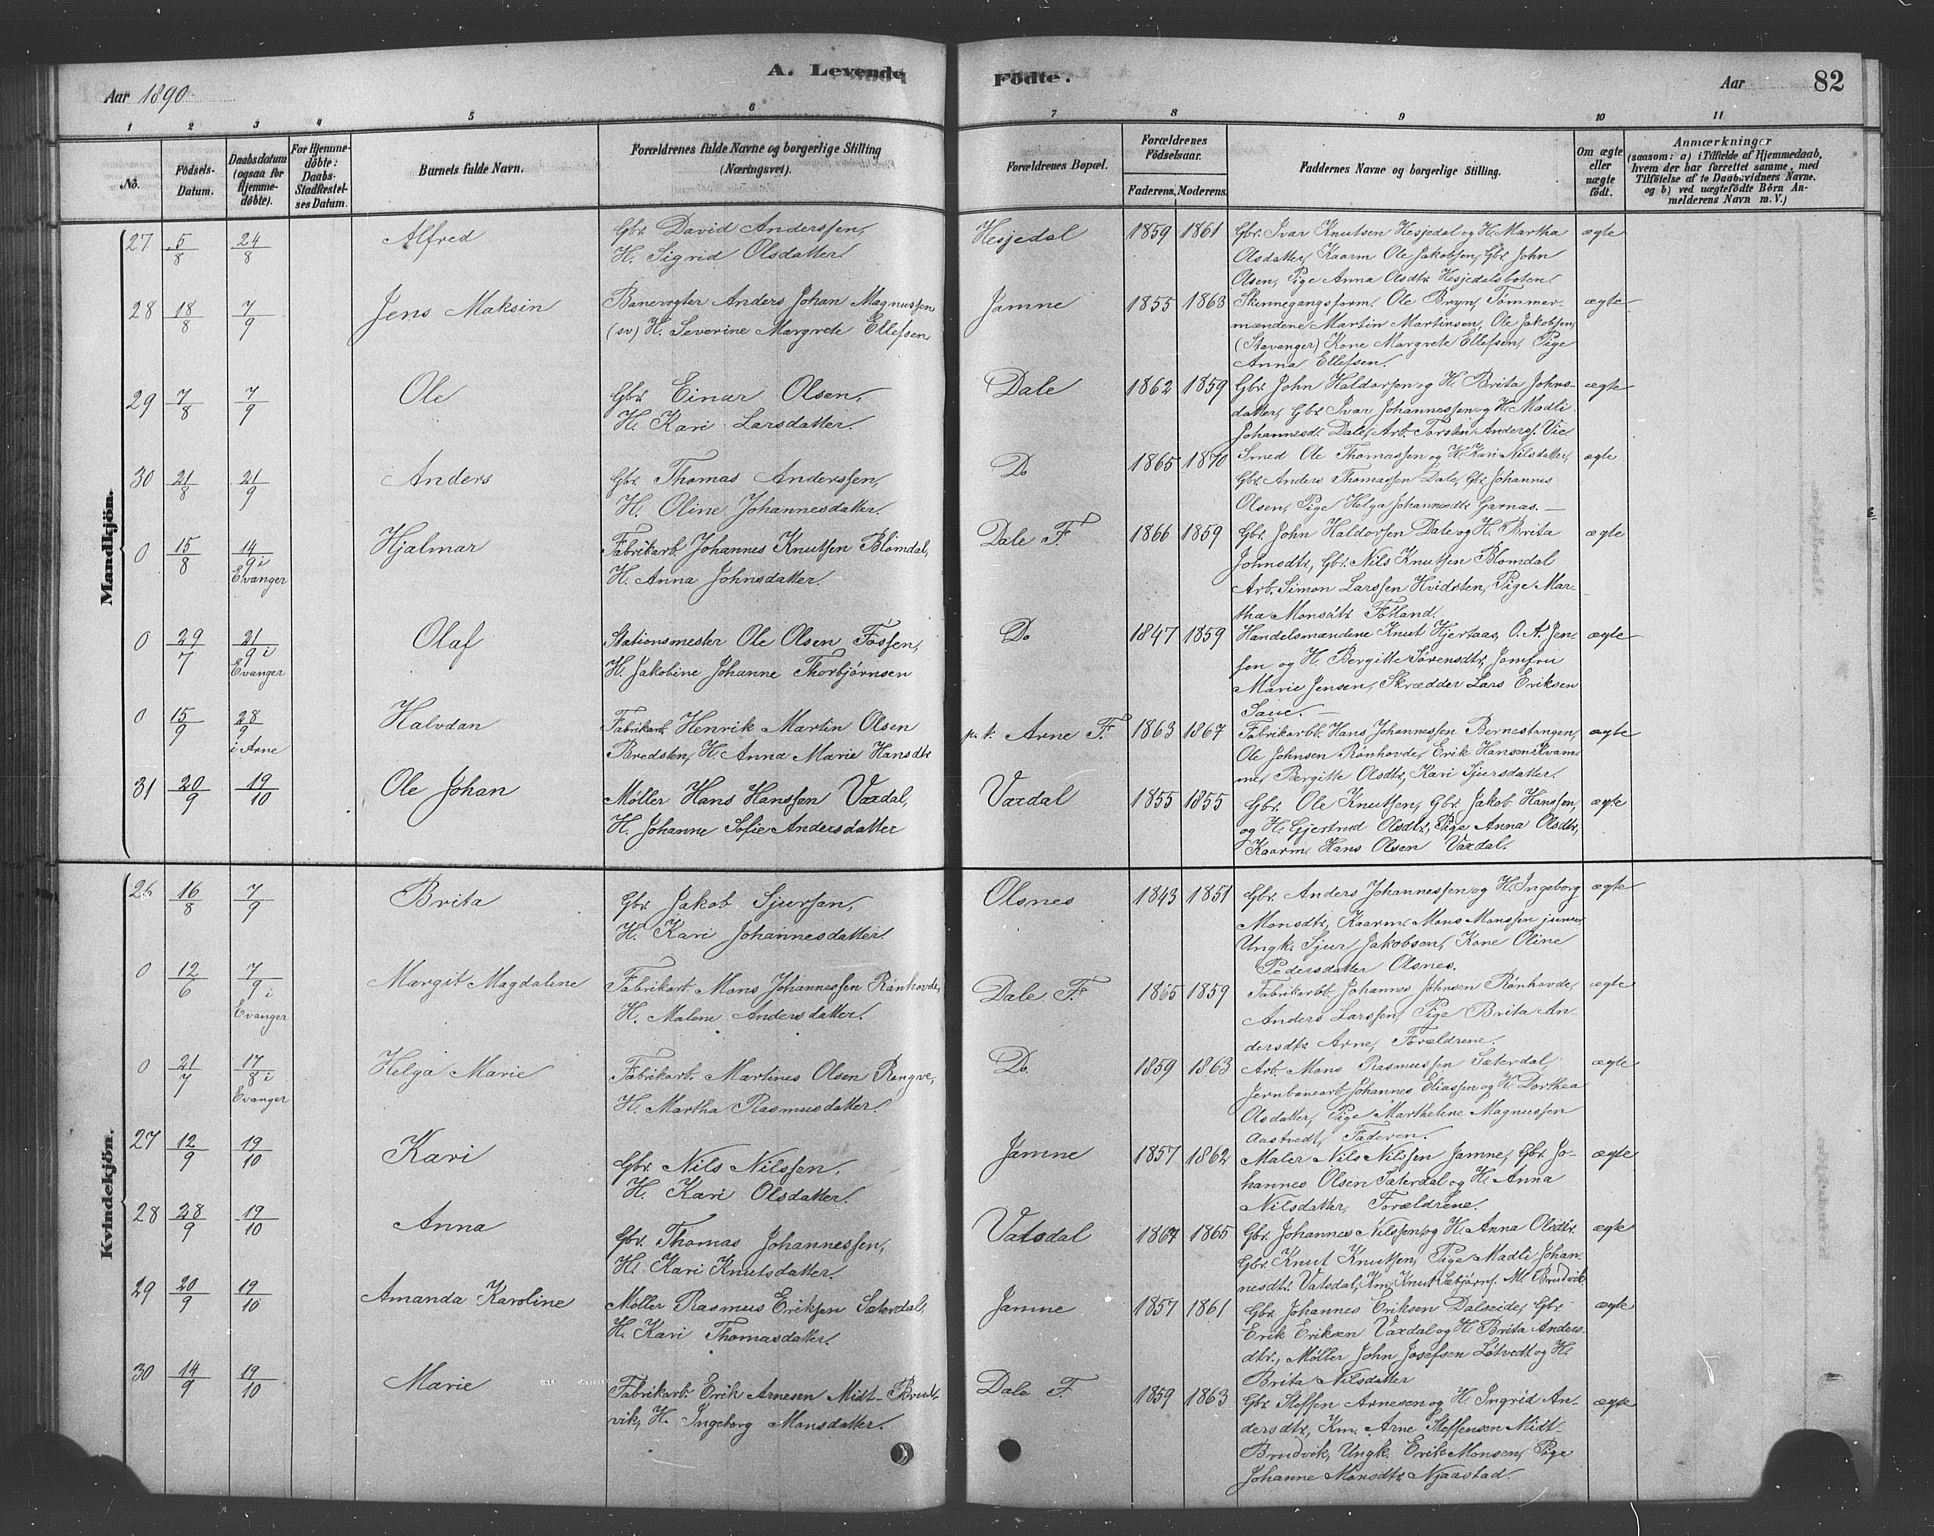 A. Levende Födte.
Aar 1890
Aar
82
1 2 3 4 5 6 7 8 9 10 11
No.
Födsels-Datum.
Daabsdatum (ogsaa for Hjemme-döbte).
For Hjemme-döbte: Daabs-Stadfæstel-ses Datum.
Barnets fulde Navn.
Forældrenes fulde Navne og borgerlige Stilling (Næringsvei).
Forældrenes Bopæl.
Forældrenes Födselsaar.
Faderens. Moderens.
Faddernes Navne og borgerlige Stilling.
Om ægte eller uægte födt.
Anmærkninger
(saasom: a) i Tilfælde af Hjemmedaab,
hvem der har forrettet samme, med
Tilföielse af to Daabsvidners Navne.
og b) ved uægtefödte Börn An-
melderens Navn m. V.)
Mandkjön.
27 5/8 24/8 Alfred Gbr. David Anderssen, Hesjedal 1859 1861 Gbr. Ivar Knutsen Hesjedal og H. Martha ægte
H. Sigrid Olsdatter. Olsdatter, Kaarm. Ole Jakobsen, Gbr. John
Olsen, Pige Anna Olsdtr. Hesjedalsboten.
28 18/8 7/9 Jens Maksin Banevogter Anders Johan Magnussen Jamne 1855 1863 Skinnegangsform. Ole Bryn, Tømmer- ægte
(sv) H. Severine Margrete Ellefsen mændene Martin Martinsen, Ole Jakobsen,
(Stavanger) Kone Margrete Ellefsen, Pige
Anna Ellefsen.
29 7/8 7/9 Ole Gbr. Einar Olsen, Dale 1862 1859 Gbr. John Haldorsen og H. Brita Johns- ægte
H. Kari Larsdatter. datter, Gbr. Ivar Johannessen og H. Madli
Johannesdr. Dale, Arb. Torsten Anders. Vie
30 21/8 21/9 Anders Gbr. Thomas Anderssen, Do 1865 1870 Smed Ole Thomassen og H. Kari Nilsdatter, ægte
H. Oline Johannesdatter. Gbr. Anders Thomassen Dale, Gbr. Johannes
Olsen, Pige Helga Johannesdtr. Garnas.
0 15/8 14/9 i Evanger Hjalmar Fabrikarb. Johannes Knutsen Blomdal, Dale F. 1866 1859 Gbr. John Haldorsen Dale og H. Brita ægte
H. Anna Johnsdatter. Johnsdtr, Gbr. Nils Knutsen Blomdal
Arb. Simon Larssen Hvidsten, Pige Mar-
tha Monsdtr. Fotland.
0 29/7 21/9 i Evanger Olaf Stationsmester Ole Olsen Fossen, Do 1847 1859 Handelsmændene Knut Hjertaas, O. A. Jen- ægte
H. Jakobine Johanne Thorbjørnsen sen og H. Bergitte Sørensdtr, Jomfru
Marie Jensen, Skrædder Lars Eriksen
Saue.
0 15/9 28/9 i Arne Halvdan Fabrikarb. Henrik Martin Olsen p. t. Arne F. 1863 1867 Fabrikarbb. Hans Johannessen Bernestangen, ægte
Bredsten, H. Anna Marie Hansdtr Ole Johnsen Rønhovde, Erik Hansen Kvam-
me, Bergitte Olsdtr, Kari Sjursdatter.
31 20/9 19/10 Ole Johan Møller Hans Hanssen Vaxdal, Vaxdal 1855 1855 Gbr. Ole Knutsen, Gbr. Jakob Hanssen, ægte
H. Johanne Sofie Andersdatter og H. Gjertrud Olsdtr, Pige Anna Olsdtr,
Kaarm. Hans Olsen Vaxdal.
Kvindekjön.
26 16/8 7/9 Brita Gbr. Jakob Sjursen, Olsnes 1843 1851 Gbr. Anders Johannessen og H. Ingeborg ægte
H. Kari Johannesdatter. Monsdtr, Kaarm. Mons Monssen junior
Ungk. Sjur Jakobsen, Kone Oline
Pedersdatter Olsnes.
0 12/6 7/9 i Evanger Margit Magdalene Fabrikarb. Mons Johannessen Rønhovde, Dale F. 1865 1859 Fabrikarbb. Johannes Johnsen Rønhovde, ægte
H. Malene Andersdatter. Anders Larssen, Pige Brita An-
dersdtr. Arne, Forældrene.
0 21/7 17/8 i Evanger Helga Marie Fabrikarb. Martines Olsen Rongve, Do. 1859 1863 Arb. Mons Rasmussen Sæterdal, ægte
H. Martha Rasmusdatter. Jernbanearb. Johannes Eliassen og H. Dorthea
Olsdatter, Pige Marthelene Magnussen
Aastvedt, Faderen.
27 12/9 19/10 Kari Gbr. Nils Nilssen. Jamne 1857 1862 Maler Nils Nilssen Jamne, Gbr. Jo- ægte
H. Kari Olsdatter. hannes Olsen Sæterdal og H. Anna
Nilsdatter, Forældrene.
28 28/9 19/10 Anna Gbr. Thomas Johannessen, Vatsdal 1867 1865 Gbr. Johannes Nilssen og H. Anna Olsdtr. ægte
H. Kari Knutsdatter. Gbr. Knut Knutsen, Pige Madli Johan-
nesdtr. Vatsdal, Km. Knut Sebjørns. Mt. Brudvik
29 20/9 19/10 Amanda Karoline Møller Rasmus Eriksen Sæterdal, Jamne 1857 1861 Gbr. Johannes Eriksen Dalseide, Gbr. ægte
H. Kari Thomasdatter. Erik Eriksen Vaxdal og H. Brita Anders-
dtr., Møller John Josefsen Løtvedt og H.
Brita Nilsdatter
30 14/9 19/10 Marie Fabrikarb. Erik Arnesen Midt-Brud- Dale F. 1859 1863 Gbr. Steffen Arnesen og H. Ingrid An- ægte
vik, H. Ingeborg Monsdatter. dersdtr, Km. Arne Steffensen Midt-
Brudvik, Ungk. Erik Monsen, Pige
Johanne Monsdtr Njaastad.